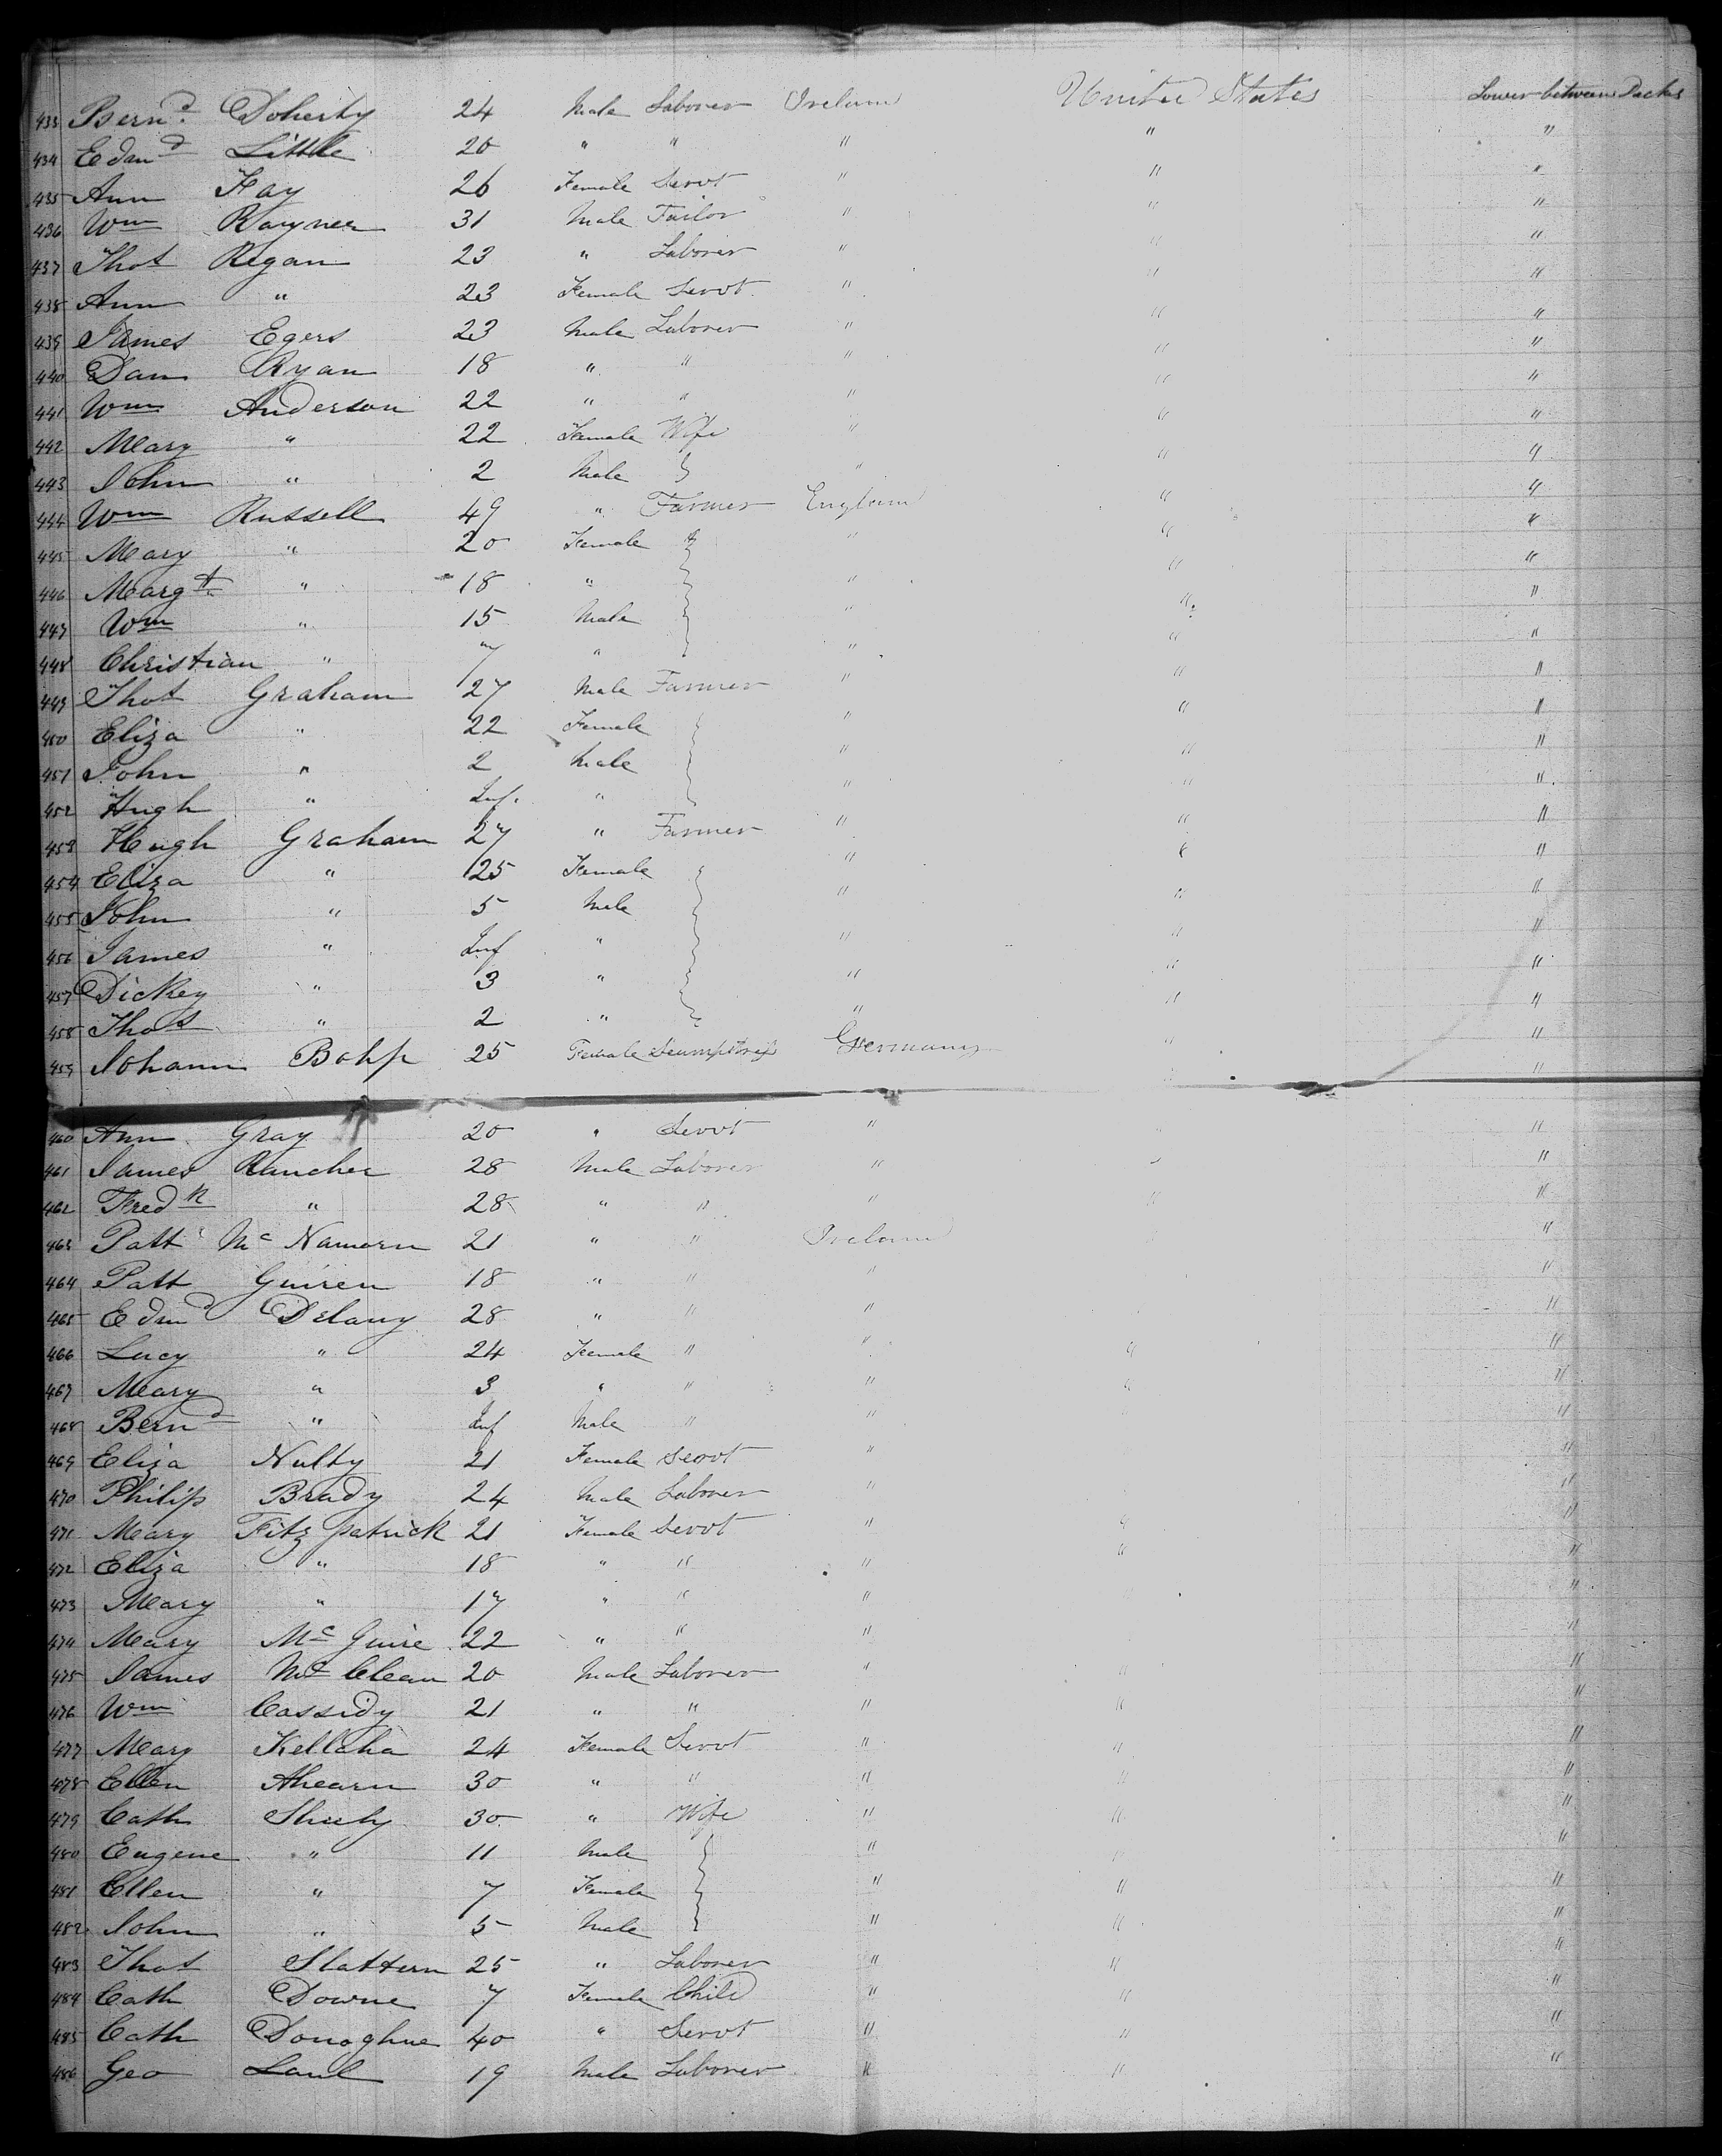 433 Bern.d Doherty 24 Male Laborer Ireland United States Lower between Decks
434 Edmd Little 20 " " " " "
435 Ann Fay 26 Female Servt " " "
436 Wm Rayner 31 Male Tailor " " "
437 Thos Regan 23 " Laborer " " "
438 Ann " 23 Female Servt " " "
439 James Egers 23 Male Laborer " " "
440 Dan Ryan 18 " " " " "
441 Wm Anderson 22 " " " " "
442 Mary " 22 Female Wife " " "
443 John " 2 Male } " " "
444 Wm Russell 49 " Farmer England " "
445 Mary " 20 Female } " " "
446 Margt " 18 " " " "
447 Wm " 15 Male " " "
448 Christian " 7 " " " "
449 Thos Graham 27 Male Farmer " " "
450 Eliza " 22 Female } " " "
451 John " 2 Male " " "
452 Hugh " Inf. " " " "
453 Hugh Graham 27 " Farmer " " "
454 Eliza " 25 Female } " " "
455 John " 5 Male " " "
456 James " Inf " " " "
457 Dickey " 3 " " " "
458 Thos " 2 " " " "
459 Johann 25 Female Seampstress Germany " "
460 Ann Gray 20 " Servt " "
461 James Rancher 28 Male Laborer " " "
462 Fredk " 28 " " " " "
463 Patt Mc Namara 21 " " Ireland "
464 Patt Guiren 18 " " " "
465 Edmd Delany 28 " " " "
466 Lucy " 24 Female " " " "
467 Mary " 3 " " " " "
468 Bernd " Inf Male " " "
469 Eliza Nulty 21 Female Servt " "
470 Philip Brady 24 Male Laborer " "
471 Mary Fitzpatrick 21 Female Servt " " "
472 Eliza " 18 " " " " "
473 Mary " 17 " " " "
474 Mary Mc Guire 22 " " " "
475 James Mc Clean 20 Male Laborer " " "
476 Wm Cassidy 21 " " " " "
477 Mary Kellaha 24 Female Servt " " "
478 Ellen Ahearn 30 " " " " "
479 Cath Sheehy 30 " Wife " " "
480 Eugene " 11 Male } " " "
481 Ellen " 7 Female " " "
482 John " 5 Male " " "
483 Thos Slattern 25 " Laborer " " "
484 Cath Downe 7 Female Child " " "
485 Cath Donoghue 40 " Servt " " "
486 Geo 19 Male Laborer " " "